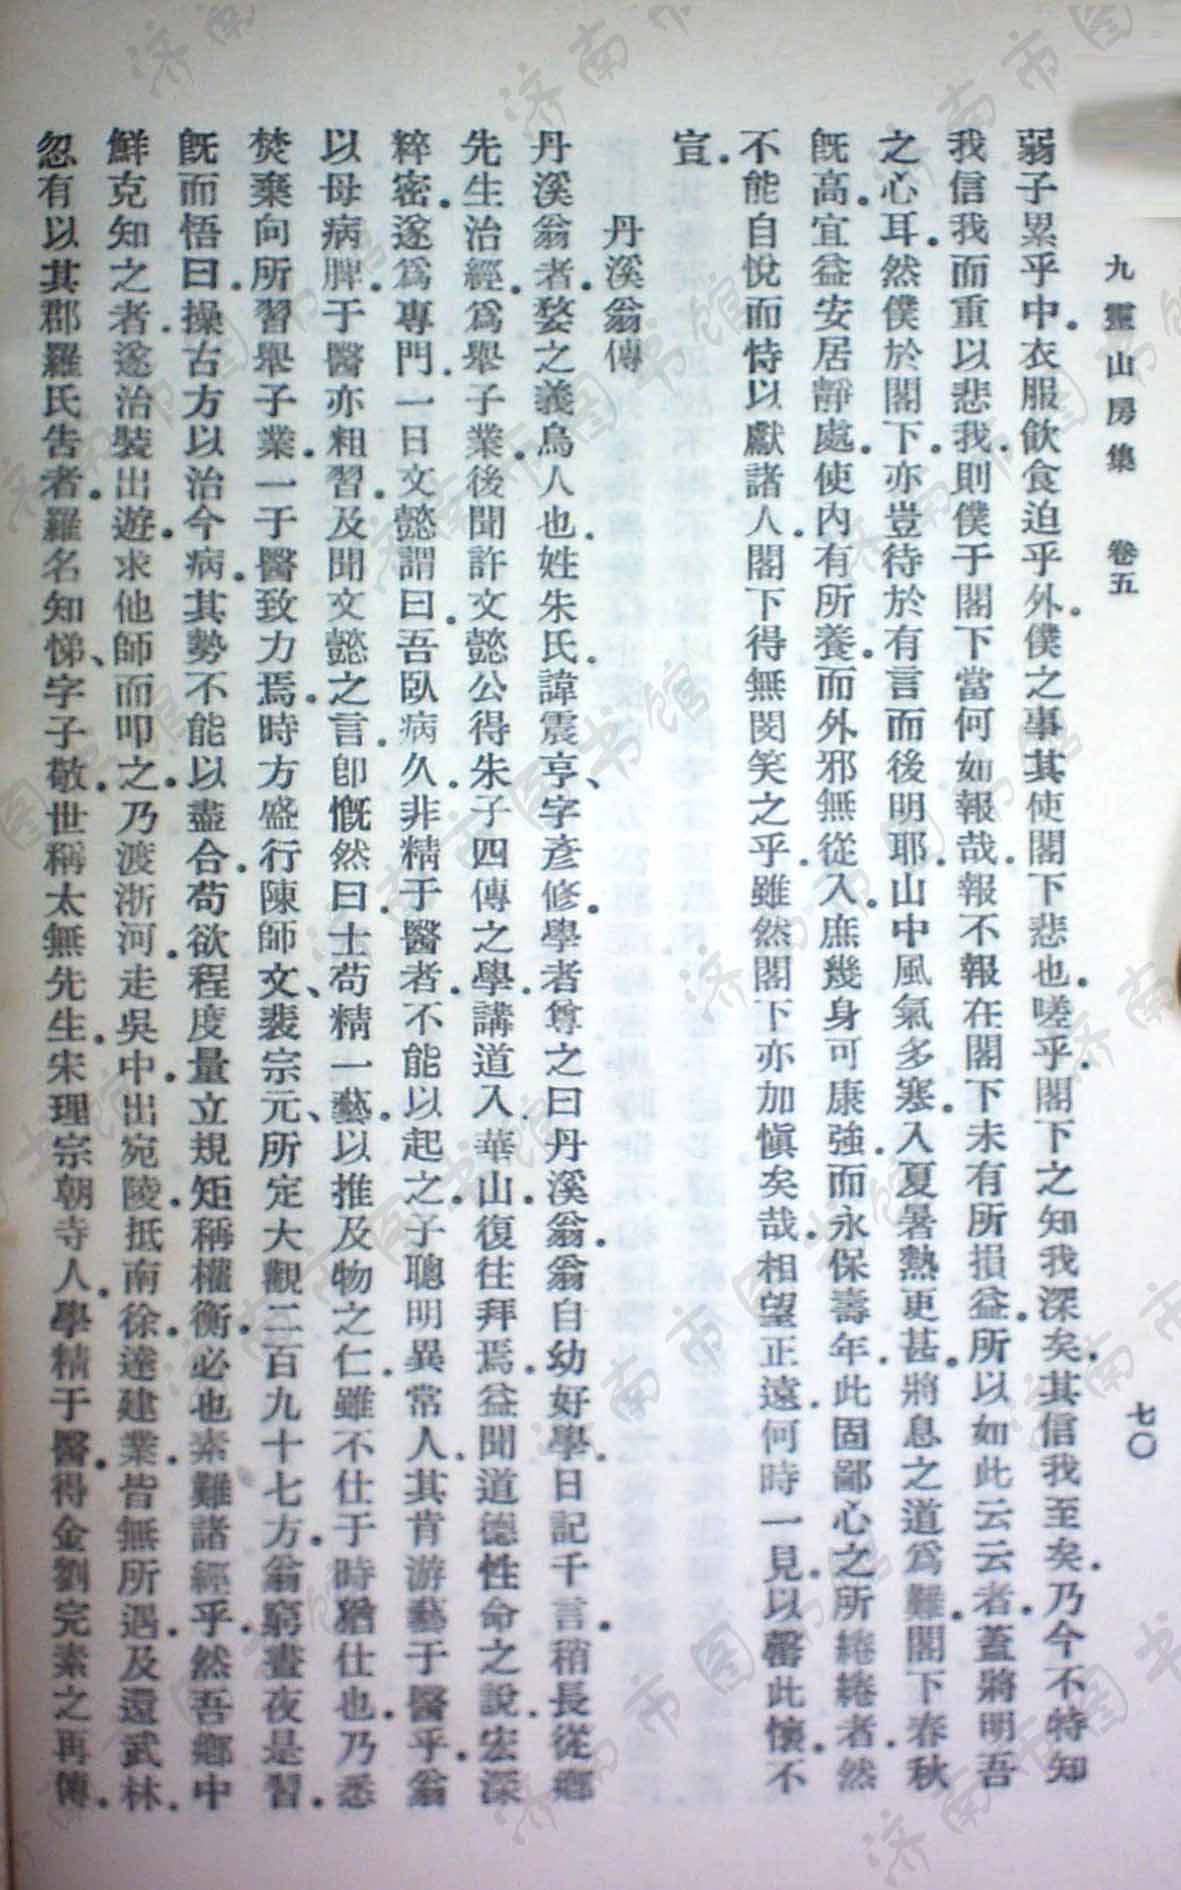 九靈山房集 卷五 七〇
弱子累乎中。衣服飲食迫乎外。僕之事其使閣下悲也。嗟乎。閣下之知我深矣。其信我至矣。乃今不特知
我信我而重以悲我。則僕于閣下當何如報哉。報不報在閣下未有所損益。所以如此云云者。蓋將明吾
之心耳。然僕於閣下。亦豈待於有言而後明耶。山中風氣多塞。入夏暑熱更甚。將息之道爲難。閣下春秋
旣高。宜益安居靜處。使內有所養。而外邪無從入。庶幾身可康強。而永保壽年。此固鄙心之所綣綣者。然
不能自悅而恃以獻諸人。閣下得無閔笑之乎。雖然閣下亦加愼矣哉。相望正遠。何時一見。以罄此懷。不
宣。
丹溪翁傳
丹溪翁者。婺之義烏人也。姓朱氏。諱震亨、字彥修。學者尊之曰丹溪翁。翁自幼好學。日記千言。稍長從鄉
先生治經。爲舉子業。後聞許文懿公得朱子四傳之學。講道入華山。復往拜焉。益聞道德性命之說。宏深
粹密。遂爲專門。一日文懿謂曰。吾臥病久。非精于醫者。不能以起之。子聰明異常人。其肯游藝于醫乎。翁
以母病脾。于醫亦粗習。及聞文懿之言。卽慨然曰。士苟精一藝。以推及物之仁。雖不仕于時。猶仕也。乃悉
焚棄向所習舉子業。一于醫致力焉。時方盛行陳師文、裴宗元、所定大觀二百九十七方。翁窮晝夜是習。
旣而悟曰。操古方以治今病。其勢不能以盡合。苟欲程度量。立規矩。稱權衡。必也素難諸經乎。然吾鄉中
鮮克知之者。遂治裝出遊。求他師而叩之。乃渡浙河。走吳中。出宛陵。抵南徐。達建業。皆無所遇。及還武林。
忽有以其郡羅氏告者。羅名知悌、字子敬。世稱太無先生。宋理宗朝寺人。學精于醫。得金劉完素之再傳。